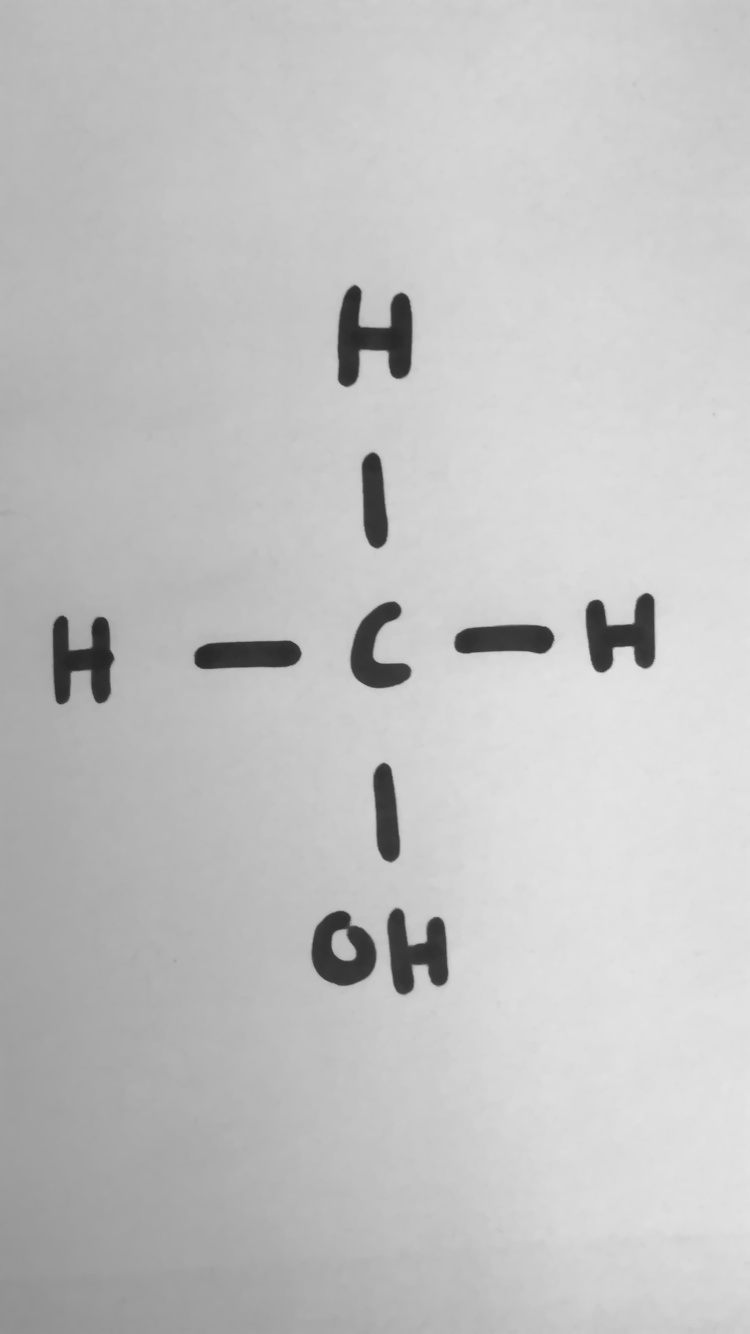 H
|
H — C — H
|
OH